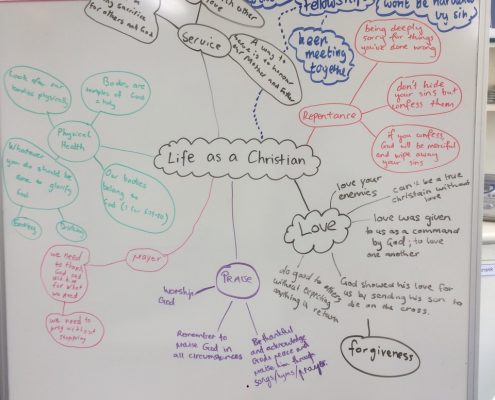 sacrifice
for others and God
each other
love
Service
A way to
serve is to honour
our Mother and Father
Fellowship
won't be hardened
by sin
keep
meeting
together
being deeply
sorry for things
you've done wrong
Repentance
don't hide
your sins but
confess them
if you confess,
God will be merciful
and wipe away
your sins
Look after our
bodies physically
Bodies are
temples of God
holy
Physical
Health
Whatever
you do should be
done to glorify
God
Our bodies
belong to
God
Eating
Drinking
Life as a Christian
love your
enemies
can't be a true
christain without
love
love was given
to us as a command
by God; to love
one another
Love
God showed his love for
us by sending his son to
die on the cross.
do good to others
without expecting
anything in return
forgiveness
Prayer
we need
to thank
God and
ask him
for what
we need
we need to
pray without
stopping
PRAISE
Worship
God
Remember to
praise God in
all circumstances
Be thankful
and acknowledge
Gods peace and
praise him through
songs/hyms/prayer